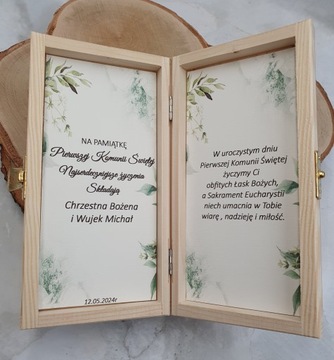 NA PAMIĄTKĘ
Pierwszej Komunii Świętej
Najserdeczniejsze życzenia
Składają
Chrzestna Bożena
i Wujek Michał
12.05.2024r
W uroczystym dniu
Pierwszej Komunii Świętej
życzymy Ci
obfitych Łask Bożych,
a Sakrament Eucharystii
niech umacnia w Tobie
wiarę , nadzieję i miłość.